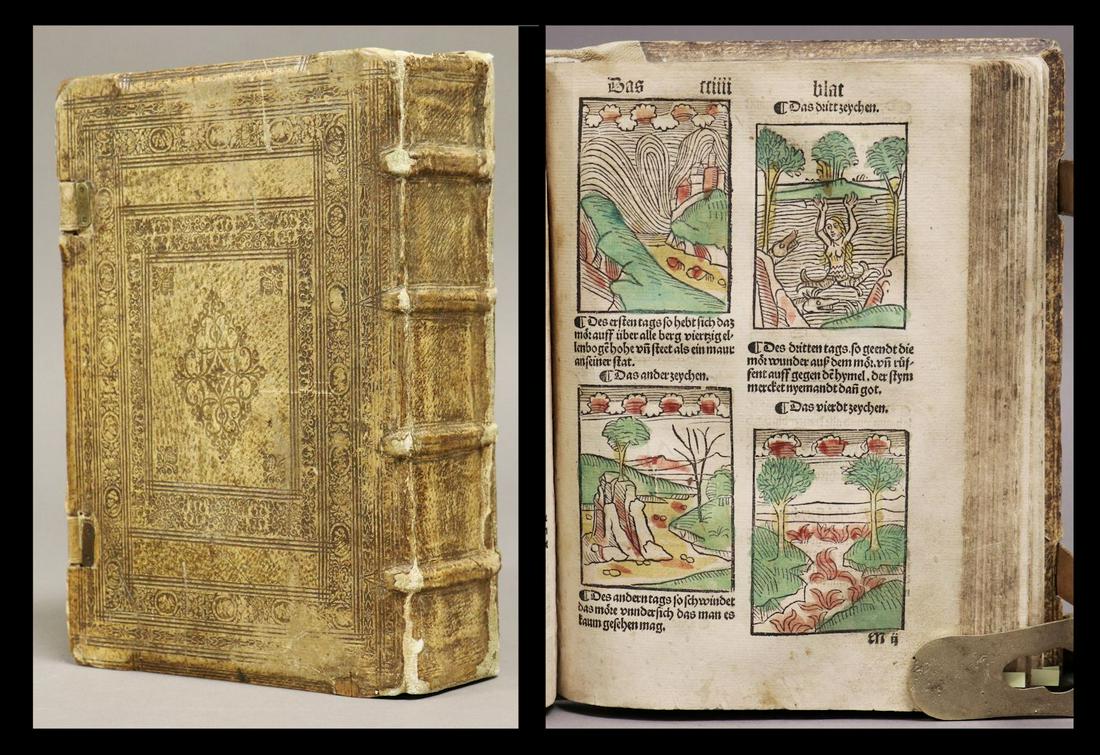 Das cciiii blat
¶ Des ersten tags so hebt sich daz
mör auff über alle berg viertzig el-
lenbogē hohe vñ steet als ein maur
an seiner stat.
¶ Das ander zeychen.
¶ Des andern tags so schwindet
das möre vnndersich das man es
kaum gesehen mag.
¶ Das dritt zeychen.
¶ Des dritten tags. so geendt die
mör wunder auß dem mör. vñ rüf-
fent auff gegen dē hymel. der stym
mercket nyemandt dañ got.
¶ Das vierdt zeychen.
M ij